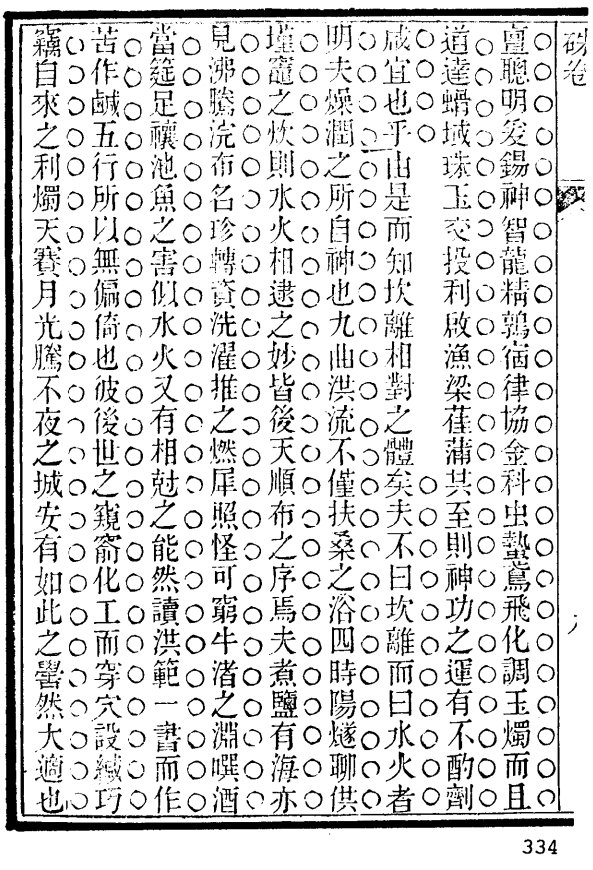 硃卷
亶聰明爰錫神智龍精鶉宿律協金科虫蟄鳶飛化調玉燭而且
道達蝟域珠玉交投利啟漁梁萑蒲共至則神功之運有不酌劑
咸宜也乎由是而知坎離相對之體矣夫不曰坎離而曰水火者
明夫燥潤之所自神也九曲洪流不僅扶桑之浴四時陽燧聊供
墐竈之炊則水火相逮之妙皆後天順布之序焉夫煮鹽有海亦
見沸騰浣布名珍轉資洗濯推之燃犀照怪可窮牛渚之淵噀酒
當筵足禳池魚之害似水火又有相尅之能然讀洪範一書而作
苦作鹹五行所以無偏倚也彼後世之窺窬化工而穿穴設緘巧
竊自來之利燭天賽月光騰不夜之城安有如此之罍然大適也
334